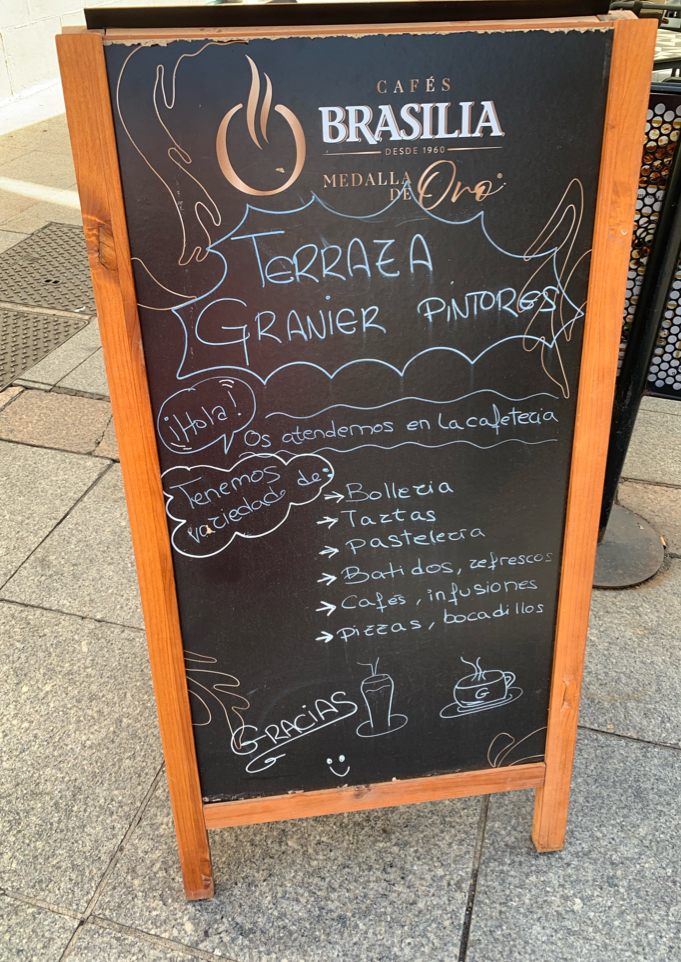 CAFÉS
BRASILIA
DESDE 1960
MEDALLA
DE Oro
TERRAZA
GRANIER PINTORES
¡Hola!
Os atendemos en la cafeteria
Tenemos
variedad de:
→ Bolleria
→ Tartas
→ Pasteleria
→ Batidos, refrescos
→ Cafés, infusiones
→ Pizzas, bocadillos
G
GRACIAS